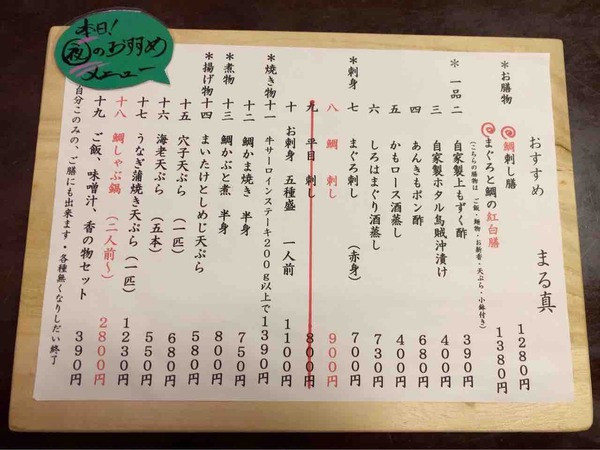 本日！
夜のおすすめ
メニュー
おすすめ　まる真
＊お膳物
鯛刺し膳　１２８０円
まぐろと鯛の紅白膳　１３８０円
（こちらの膳物は　ご飯・麺物・お新香・天ぷら・小鉢付き）
＊一品
二　自家製上もずく酢　３９０円
三　自家製ホタル烏賊沖漬け　４４０円
四　あんきもポン酢　６８０円
五　かもロース酒蒸し　４００円
六　しろはまぐり酒蒸し　７３０円
＊刺身
七　まぐろ刺し　（赤身）　７００円
八　鯛　刺し　９００円
九　平目　刺し　８００円
十　お刺身　五種盛　一人前　１１００円
＊焼き物
十一　牛サーロインステーキ２００ｇ以上で１３９０円
十二　鯛かま焼き　半身　７５０円
＊煮物
十三　鯛かぶと煮　半身　８００円
＊揚げ物
十四　まいたけとしめじ天ぷら　５８０円
十五　穴子天ぷら　（一匹）　６８０円
十六　海老天ぷら　（五本）　５５０円
十七　うなぎ蒲焼き天ぷら（一匹）　１２３０円
十八　鯛しゃぶ鍋　（二人前〜）　２８００円
十九　ご飯、味噌汁、香の物セット　３９０円
自分このみの、ご膳にも出来ます・各種無くなりしだい終了